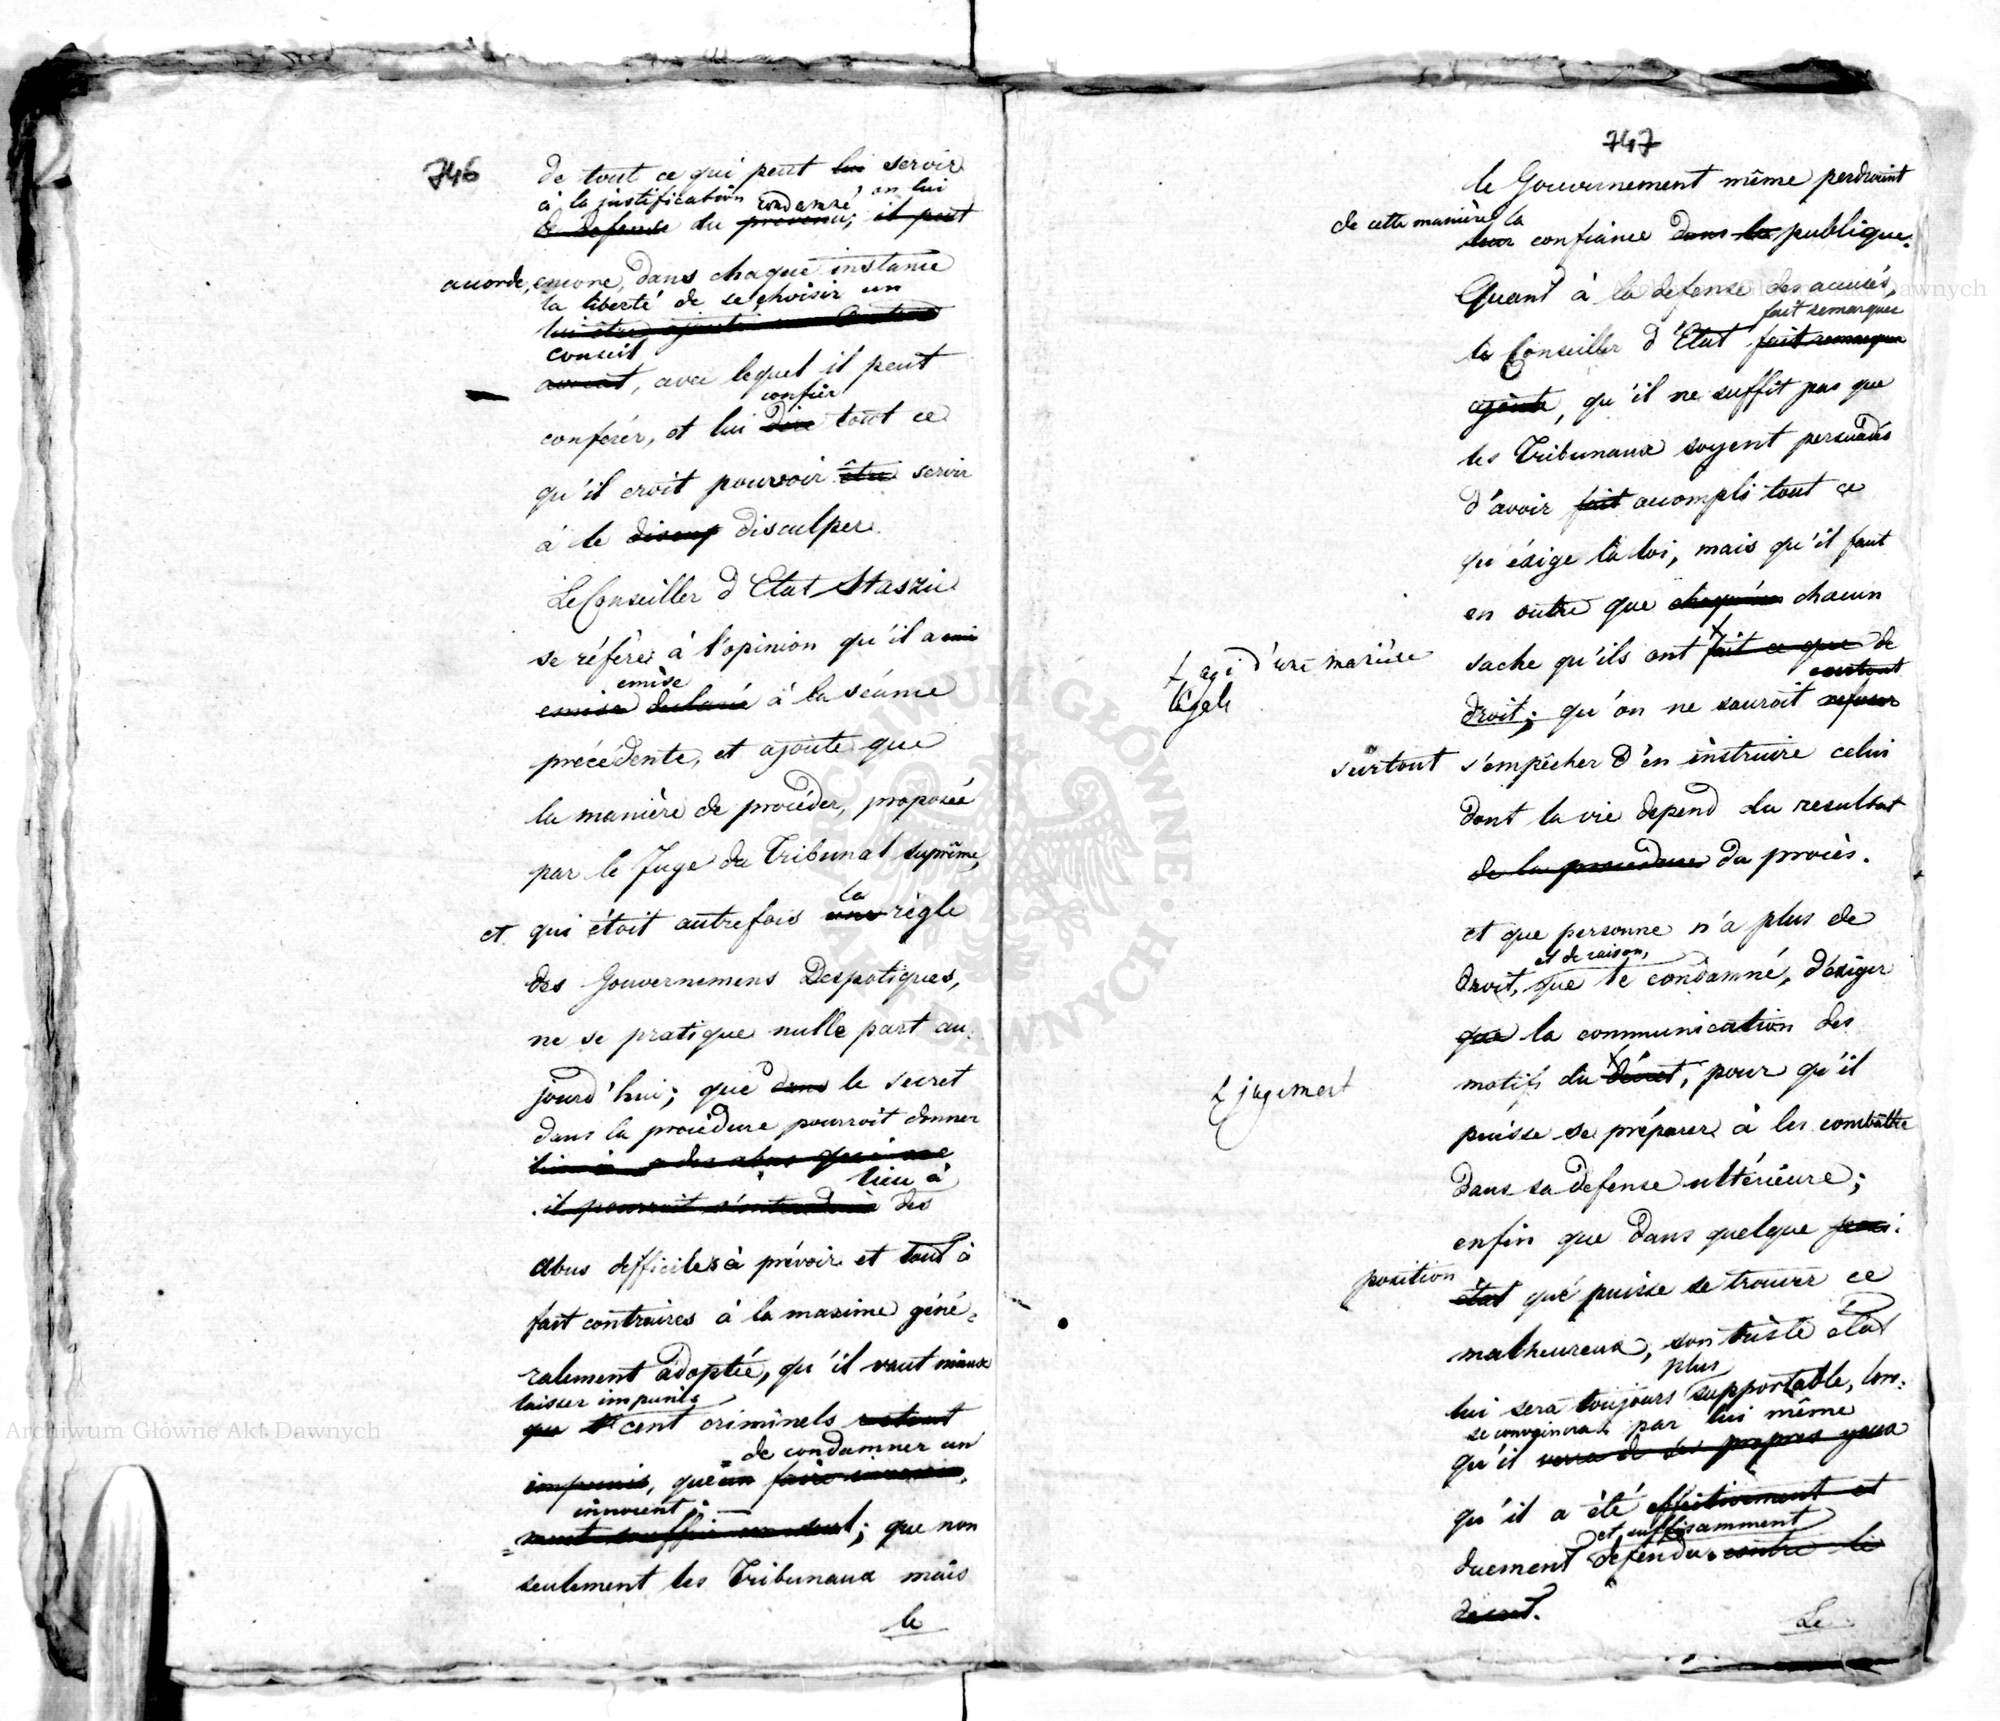 746
de tout ce qui peut lui servir
à la justification condamné on lui
de defense du prevenu; il peut
accorde, encore, dans chaque instance
la liberté de se choisir un
lui être
conseil
avocat, avec lequel il peut
confier
conferér, et lui dire tout ce
qu'il croit pouvoir être servir
à le disculper.
Le Conseiller d'Etat Staszic
se réfère à l'opinion qu'il a
emise
emise declarée à la séance
précédente, et ajoute que
la manière de procéder, proposée
par le Juge du Tribunal suprême,
la
et qui étoit autrefois une règle
des Gouvernemens Despotiques,
ne se pratique nulle part au
jourd'hui; que dans le secret
dans la procédure pourroit donner
des abus qui ne
lieu à
il pourroit s'introduire des
abus difficiles à prévoir et tout à
fait contraires à la maxime géné=
ralement adoptée, qu'il vaut mieux
laisser impunis
que cent criminels restent
= de condamner un
impunis, que un faire
innocent;
= ; que non
seulement les Tribunaux mais
le
747
le Gouvernement même perdroient
de cette manière la
leur confiance dans le publique.
Quant à la defense des accusés,
fait remarquer
le Conseiller d'Etat fait remarquer
ajoute, qu'il ne suffit pas que
les Tribunaux soyent persuadés
d'avoir fait accompli tout ce
qu'éxige la loi, mais qu'il faut
en outre que chacun
agi d'une maniére
légale
sache qu'ils ont fait ce que de
surtout
droit; qu'on ne sauroit refuser
surtout s'empêcher d'en instruire celui
dont la vie depend du resultat
de la procedure du procès.
et que personne n'a plus de
et de raison,
droit, que le condamné, d'éxiger
que la communication des
jugement
motifs du décret, pour qu'il
puisse se préparer à les combattre
dans sa defense ultérieure;
enfin que dans quelque
position
état que puisse se trouver ce
malheureux, son triste état
plus
lui sera toujours supportable, lors=
se convaincra par lui même
qu'il verra de ses propres yeux
qu'il a été effectivement et
et suffisamment
duement défendu contre le
decret.
Le
Archiwum Główne Akt Dawnych
Archiwum Główne Akt Dawnych
ARCHIWUM GŁÓWNE AKT DAWNYCH